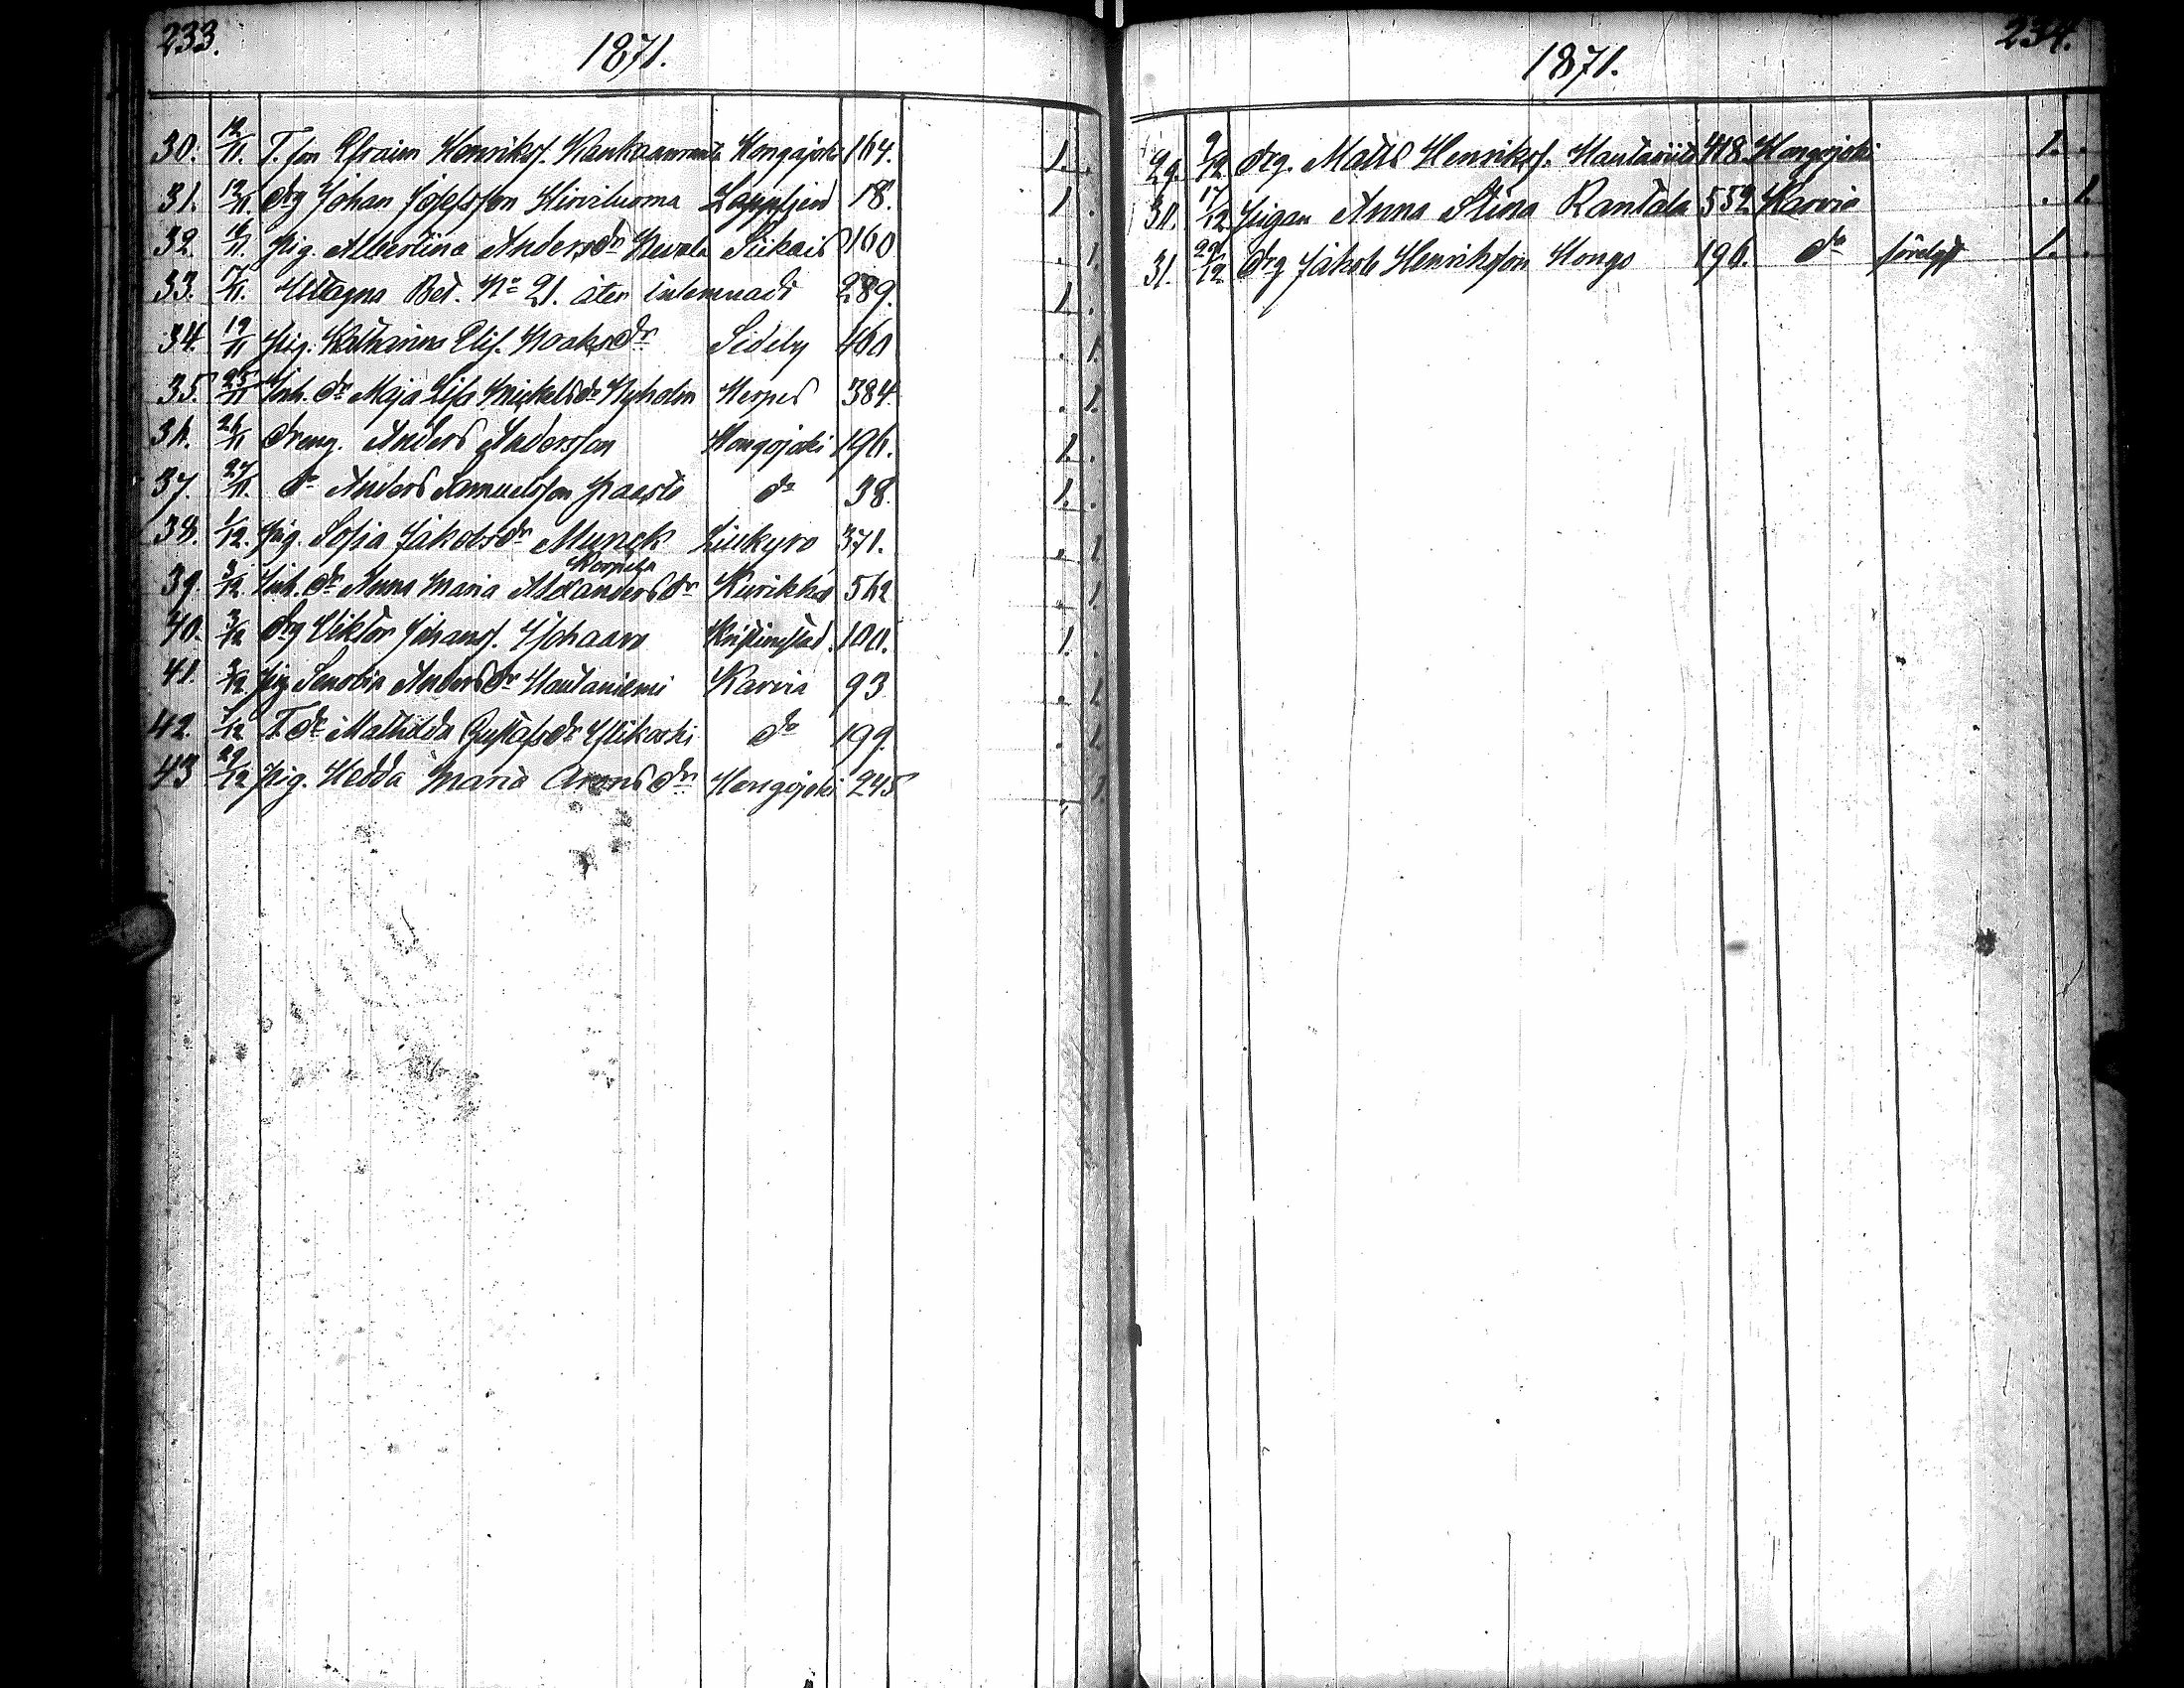 233.
1871.
30. 12/11. T. son Efraim Henrikss. Kankaanranta Hongojoki 164. 1. .
31. 12/11. Drg Johan Josefsson Hirviluoma Lappfjerd 18. 1 .
32. 16/11. Pig. Albertina Andersdr Nevala Siikais 160 . 1.
33. 17/11. Uttagna Bet. No 21. åter inlemnadt 289. 1 .
34. 19/11 Pig. Katharina Elis. Noaksdr Sideby 460 . 1.
35. 25/11 Inh. dr Maja Lisa Mickelsdr Nyholm Nerpes 384. . 1.
36. 26/11 Dreng. Anders Andersson Hongojoki 196. 1. .
37. 27/11. do Anders Samuelsson do 38. 1. .
38. 1/12. Pig. Sofia Jakobsdr Munck Liukyro 371. . 1
Korpela
39. 3/12. Inh. dr Anna Maria Alexandersdr Kurikka 562 . 1.
40. 3/12 Drg Viktor Johanss. Kristinestad. 100. 1. .
41. 3/12 Pig Senobia Andersdr Hautaniemi Karvia 93 . 1.
42. 7/12 T. dr Mathilda Gustafsdr Ylikoski do 199. . 1.
43 29/12 Pig. Hedda Maria Aronsdr Hongojoki 245 . 1.
234.
1871.
29. 9/12 Drg. Matts Henrikss. 418. Hongojoki 1. .
30. 17/12 Pigan Anna Stina Rantala 552 Karvia . 1.
31. 29/12 Drg Jakob Henriksson Hongo 196. do 1. .